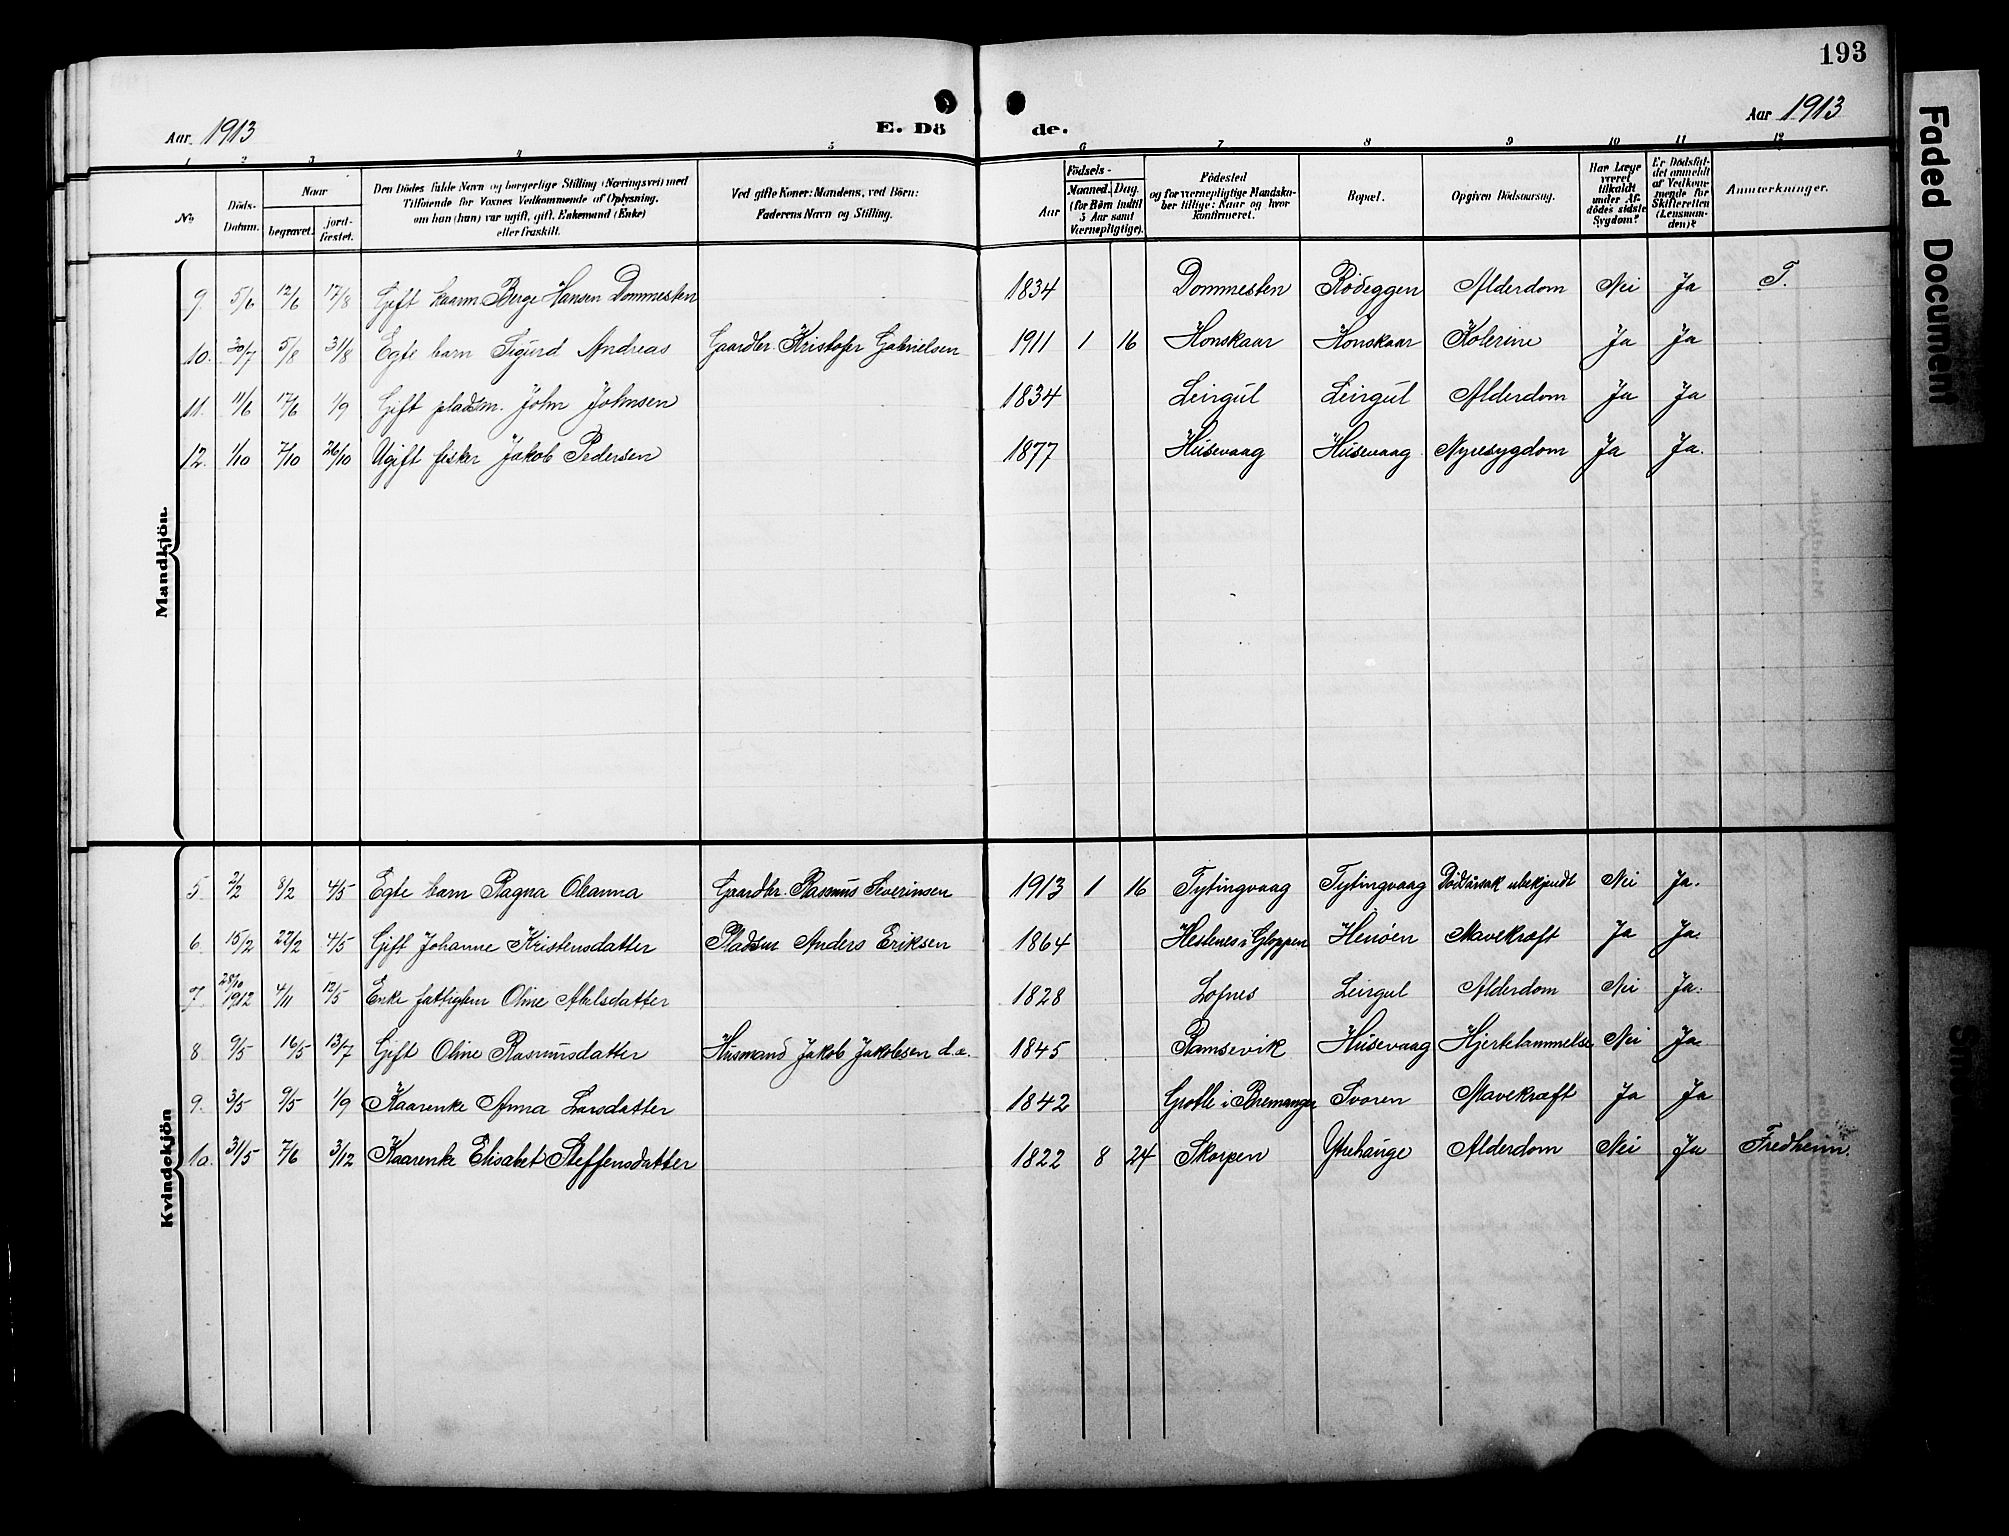 193
Aar 1913
E. Dö
de.
Aar 1913
1 2 3 4 5 6 7 8 9 10 11 12
No
Döds-Datum.
Naar
begravet.
jord-fæstet.
Den Dödes fulde Navn og borgerlige Stilling (Næringsvei) med
Tilföiende for Voxnes Vedkommende af Oplysning,
om han (hun) var ugift, gift, Enkemand (Enke)
eller fraskilt.
Ved gifte Koner: Mandens, ved Börn:
Faderens Navn og Stilling.
Födsels-
Aar
Maaned. Dag.
(for Börn indtil
5 Aar samt
Værnepligtige).
Födested
og for værnepligtige Mandska-
ber tillige: Naar og hvor
konfirmeret.
Bopæl.
Opgiven Dödsaarsag.
Har Læge
været
tilkaldt
under Af-
dödes sidste
Sygdom?
Er Dödsfal-
det anmeldt
af Vedkom-
mende for
Skifteretten
(Lensman-
den)?
Anmærkninger.
Mandkjön.
9. 5/6 12/6 17/8 Gift kaarm. Berge Hansen Dommesten 1834 Dommesten Rödeggen Alderdom Nei Ja F.
10. 30/7 5/8 31/8 Egte barn Sigurd Andreas Gaardbr. Kristofer Gabrielsen 1911 1 16 Honskaar Honskaar Kolerine Ja Ja
11. 11/6 17/6 1/9 Gift pladsm. John Johnsen 1834 Leirgul Leirgul Alderdom Ja Ja
12. 1/10 7/10 26/10 Ugift fisker Jakob Pedersen 1877 Husevaag Husevaag Nyresygdom Ja Ja.
Kvindekjön
5. 2/2 8/2 4/5 Egte barn Ragna Oleanna Gaardbr. Rasmus Severinsen 1913 1 16 Tytingvaag Tytingvaag Dödsårsak ubekjendt Nei Ja.
6. 15/2 22/2 4/5 Gift Johanne Kristensdatter Pladsm Anders Eriksen 1864 Hestenes i Gloppen Henöen Mavekræft Ja Ja.
7. 28/10 1912 4/11 12/5 Enke fattiglem Oline Abelsdatter 1828 Lofnes Leirgul Alderdom Nei Ja.
8. 9/5 16/5 13/7 Gift Oline Rasmusdatter Husmand Jakob Jakobsen d.e. 1845 Ramsevik Husevaag Hjertelammelse Nei Ja
9. 3/5 9/5 1/9 Kaarenke Anna Larsdatter 1842 Grotle i Bremanger Svoren Mavekræft Ja Ja
10. 31/5 7/6 3/12 Kaarenke Elisabet Steffensdatter 1822 8 24 Skorpen Ytrehauge Alderdom Nei Ja Fredheim.
Faded Document